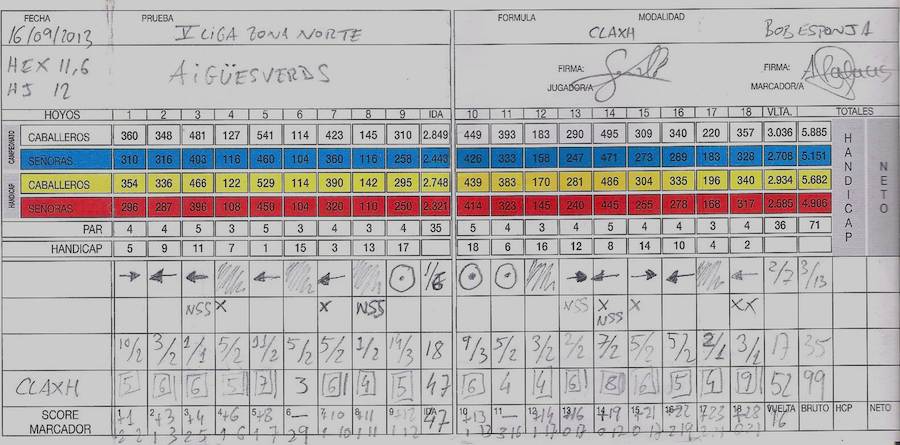 FECHA PRUEBA FORMULA MODALIDAD
16/09/2013 V LIGA ZONA NORTE CLAXH BOB ESPONJA
HEX 11,6 AiGÜESVERDS FIRMA: FIRMA:
HJ 12 JUGADOR/A MARCADOR/A
HOYOS 1 2 3 4 5 6 7 8 9 IDA 10 11 12 13 14 15 16 17 18 VLTA. TOTALES
CAMPEONATO CABALLEROS 360 348 481 127 541 114 423 145 310 2.849 449 393 183 290 495 309 340 220 357 3.036 5.885
SEÑORAS 310 316 403 116 460 104 360 116 258 2.443 426 333 158 247 471 273 269 183 328 2.708 5.151
HANDICAP CABALLEROS 354 336 466 122 529 114 390 142 295 2.748 439 383 170 281 486 304 335 196 340 2.934 5.682
SEÑORAS 296 287 396 108 450 104 320 110 250 2.321 414 323 145 240 445 255 278 168 317 2.585 4.906
PAR 4 4 5 3 5 3 4 3 4 35 5 4 3 4 5 4 4 3 4 36 71
HANDICAP 5 9 11 7 1 15 3 13 17 18 6 16 12 8 14 10 4 2
HANDICAP
NETO
1/6 2/7 3/13
NSS X X NSS NSS X X XX
NSS
10/2 3/2 1/1 5/2 11/2 5/2 5/2 1/2 14/3 18 9/3 5/2 3/2 2/2 7/2 5/2 5/2 2/1 3/1 17 35
CLAXH 5 6 6 5 7 3 6 4 5 47 6 4 4 6 8 6 5 4 9 52 99
SCORE MARCADOR 1 2 3 4 5 6 7 8 9 IDA 47 10 11 12 13 14 15 16 17 18 VUELTA BRUTO HCP NETO